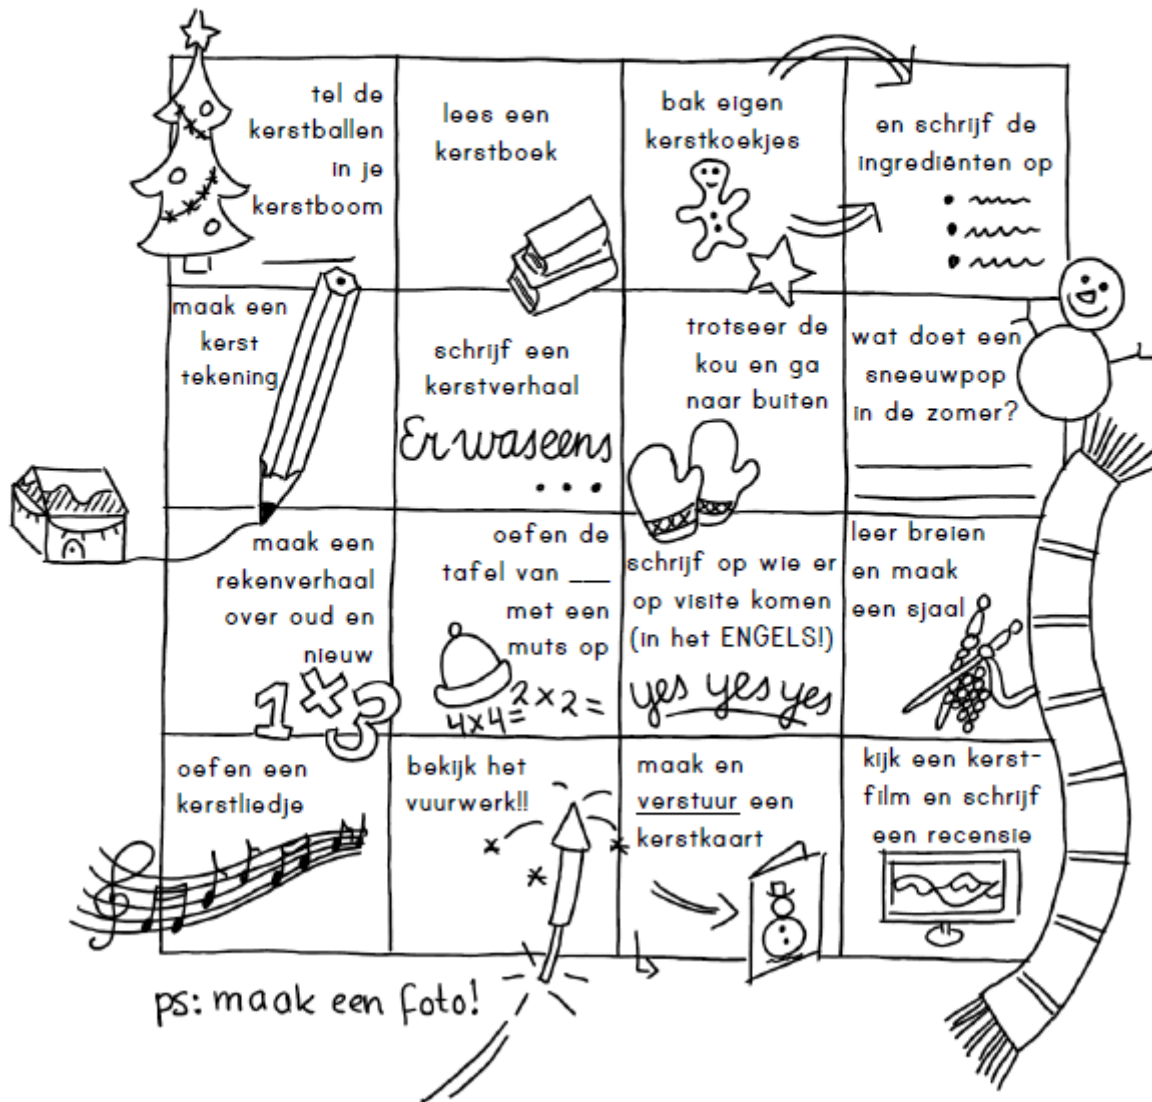 tel de
kerstballen
in je
kerstboom
lees een
kerstboek
bak eigen
kerstkoekjes
en schrijf de
ingrediënten op
maak een
kerst
tekening
schrijf een
kerstverhaal
Er was eens
...
trotseer de
kou en ga
naar buiten
wat doet een
sneeuwpop
in de zomer?
maak een
rekenverhaal
over oud en
nieuw
1x3
oefen de
tafel van ___
met een
muts op
4x4=
2x2=
schrijf op wie er
op visite komen
(in het ENGELS!)
yes yes yes
leer breien
en maak
een sjaal
oefen een
kerstliedje
bekijk het
vuurwerk!!
maak en
verstuur een
kerstkaart
kijk een kerst-
film en schrijf
een recensie
ps: maak een foto!